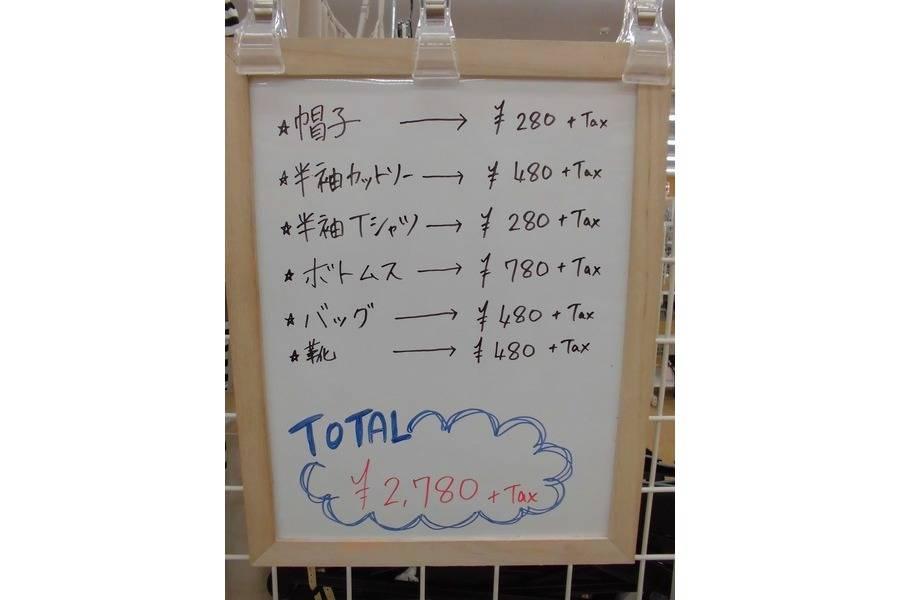 ☆帽子 → ¥280 + Tax
☆半袖カットソー → ¥480 + Tax
☆半袖Tシャツ → ¥280 + Tax
☆ボトムス → ¥780 + Tax
☆バッグ → ¥480 + Tax
☆靴 → ¥480 + Tax
TOTAL
¥2,780 + Tax